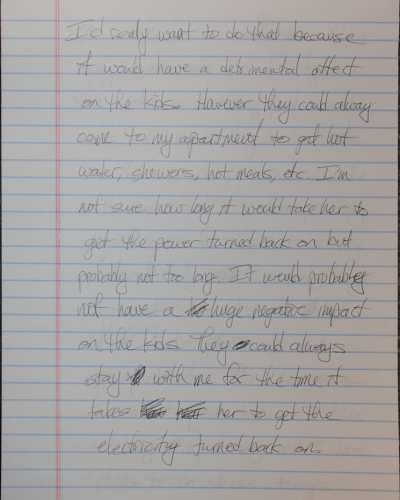 I'd realy want to do that because
it would have a detrimental affect
on the kids. However they could alway
come to my apartment to get hot
water, showers, hot meals, etc. I'm
not sure how long it would take her to
get the power turned back on but
probably not too long. It would probably
not have a huge negative impact
on the kids. They could always
stay with me for the time it
takes her to get the
electricity turned back on.